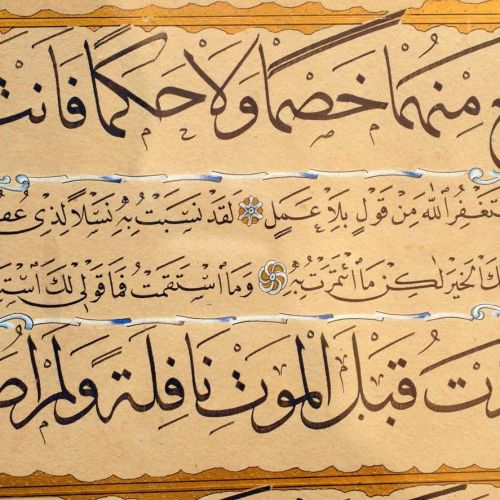 مِنْهُمَا خَصْمًا وَلَا حَكَمًا فَأَنْتَ
اَللّٰهَ مِنْ قَوْلٍ بِلَا عَمَلٍ لَقَدْ نَسَبْتُ بِهٖ نَسْلًا لِذِى
الْخَيْرَ لٰكِنْ مَا ائْتَمَرْتُ بِهٖ وَمَا اسْتَقَمْتُ فَمَا قَوْلِى لَكَ
قَبْلَ الْمَوْتِ نَافِلَةً وَلَمْ